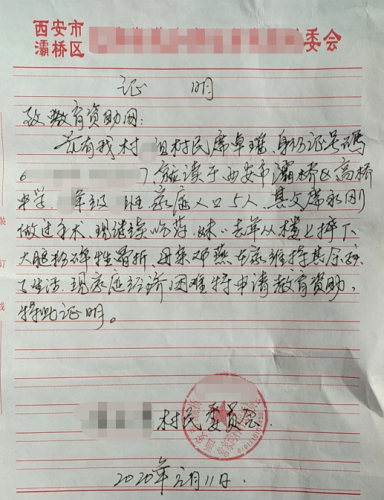 西安市
灞桥区 委会
证 明
教育资助网:
兹有我村 组村民席卓瑶,身份证号码
6 7,就读于西安市灞桥区高桥
中学 年级 班家庭人口5人,其父席永刚
做过手术,现继续吃药,妹、去年从楼上摔下,
大腿粉碎性骨折,母亲邓燕在家维持其余孩
子生活,现家庭经济困难特申请教育资助,
特此证明。
村民委员会.
2020年 月11日.